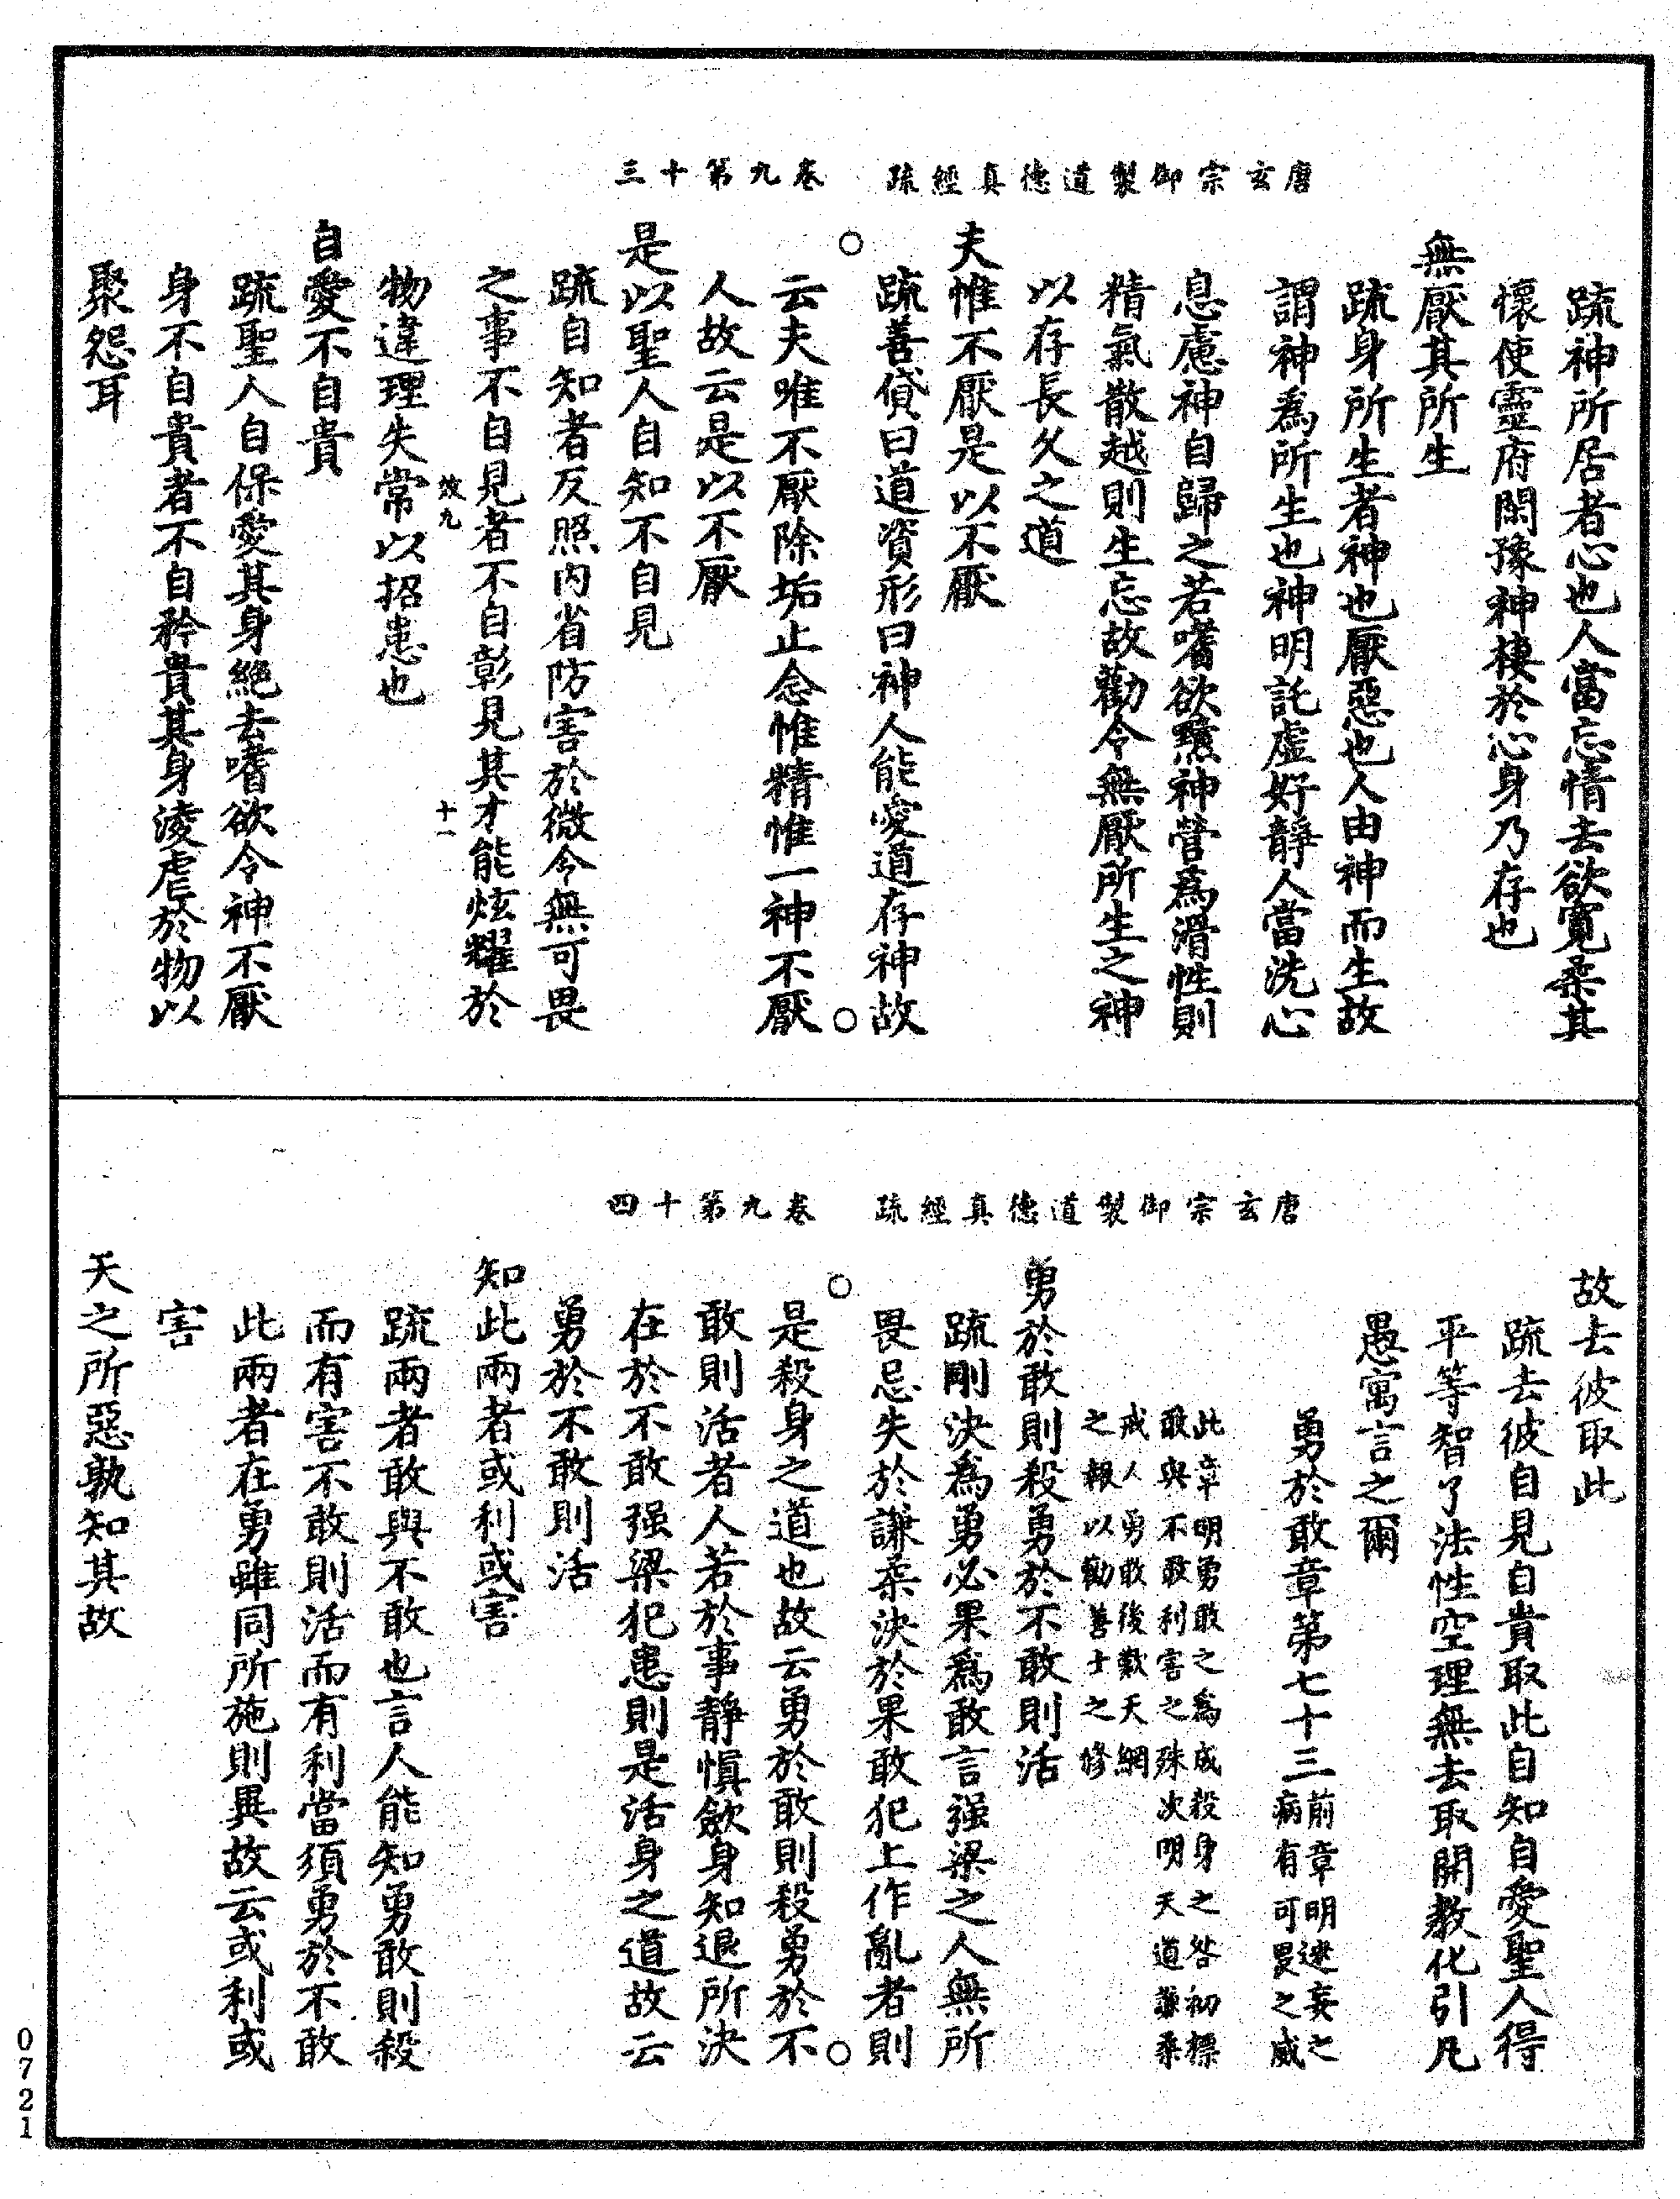 唐玄宗御製道德真經疏　卷九第十三
疏神所居者心也人當忘情去欲寬柔其
懷使靈府閑豫神棲於心身乃存也
無厭其所生
疏身所生者神也厭惡也人由神而生故
謂神為所生也神明託虛好靜人當洗心
息慮神自歸之若嗜欲黷神營為滑性則
精氣散越則生忘故勸令無厭所生之神
以存長久之道
夫惟不厭是以不厭
疏善貸曰道資形曰神人能愛道存神故
云夫唯不厭除垢止念惟精惟一神不厭
人故云是以不厭
是以聖人自知不自見
疏自知者反照內省防害於微令無可畏
之事不自見者不自彰見其才能炫耀於
效九　十一
物違理失常以招患也
自愛不自貴
疏聖人自保愛其身絕去嗜欲令神不厭
身不自貴者不自矜貴其身淩虐於物以
聚怨耳
唐玄宗御製道德真經疏　卷九第十四
故去彼取此
疏去彼自見自貴取此自知自愛聖人得
平等智了法性空理無去取開教化引凡
愚寓言之爾
勇於敢章第七十三前章明迷妄之
病有可畏之威
此章明勇敢之為成殺身之咎初標
敢與不敢利害之殊次明天道謙柔
戒人勇敢後歎天網
之報以勸善士之修
勇於敢則殺勇於不敢則活
疏剛決為勇必果為敢言强梁之人無所
畏忌失於謙柔決於果敢犯上作亂者則
是殺身之道也故云勇於敢則殺勇於不
敢則活者人若於事靜慎斂身知退所決
在於不敢强梁犯患則是活身之道故云
勇於不敢則活
知此兩者或利或害
疏兩者敢與不敢也言人能知勇敢則殺
而有害不敢則活而有利當須勇於不敢
此兩者在勇雖同所施則異故云或利或
害
天之所惡孰知其故
0721